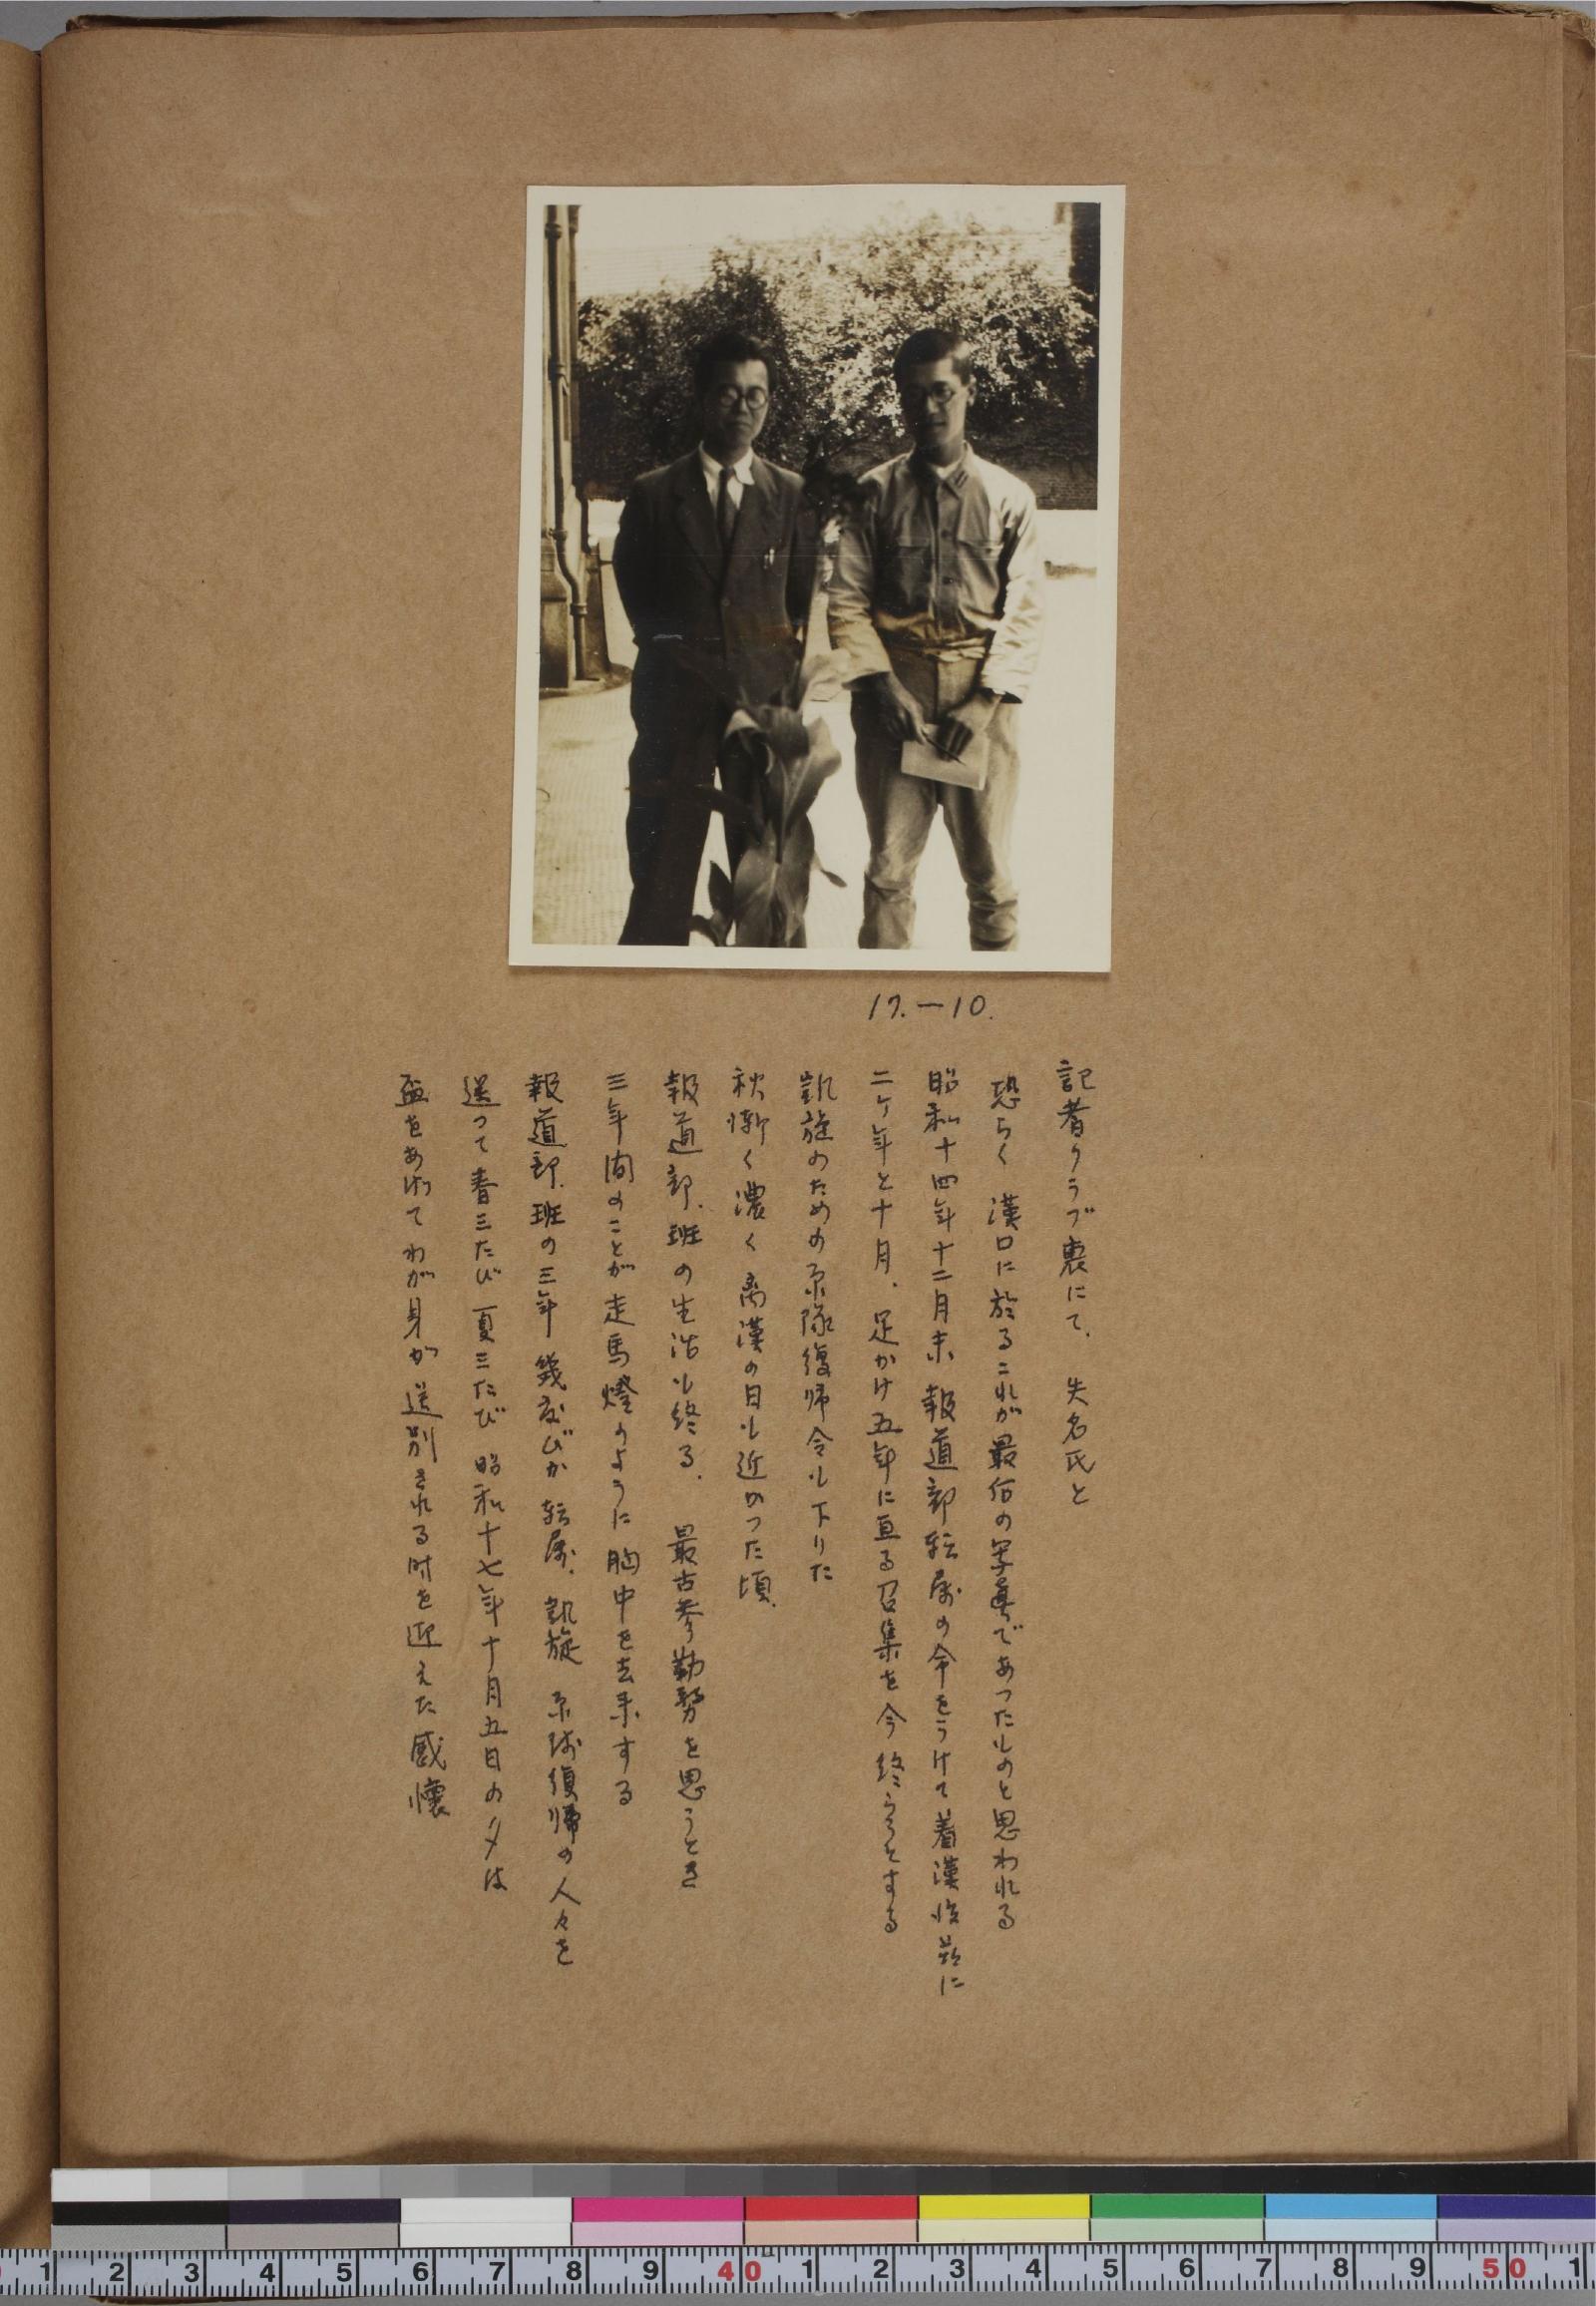 17.—10.
記者クラブ裏にて、失名氏と
恐らく 漢口に於るこれが最后の写真であつたものと思われる
昭和十四年十二月末 報道部転属の令をうけて着漢 に
二ヶ年と十月、足かけ五年に亘る召集を今終ろうとする
凱旋のための原隊復帰令も下りた
秋漸く濃く 离漢の日も近かつた頃、
報道部、班の生活も終る、 最古参勤務を思うとき
三年間のことが走馬燈のように胸中を去来する
報道部、班の三年 幾度びか 転属、凱旋 原隊復帰の人々を
送つて春三たび 夏三たび 昭和十七年十月五日の夕は
盃をあげて わが身が 送別される時を迎えた感懐
1 2 3 4 5 6 7 8 9 40 1 2 3 4 5 6 7 8 9 50 1